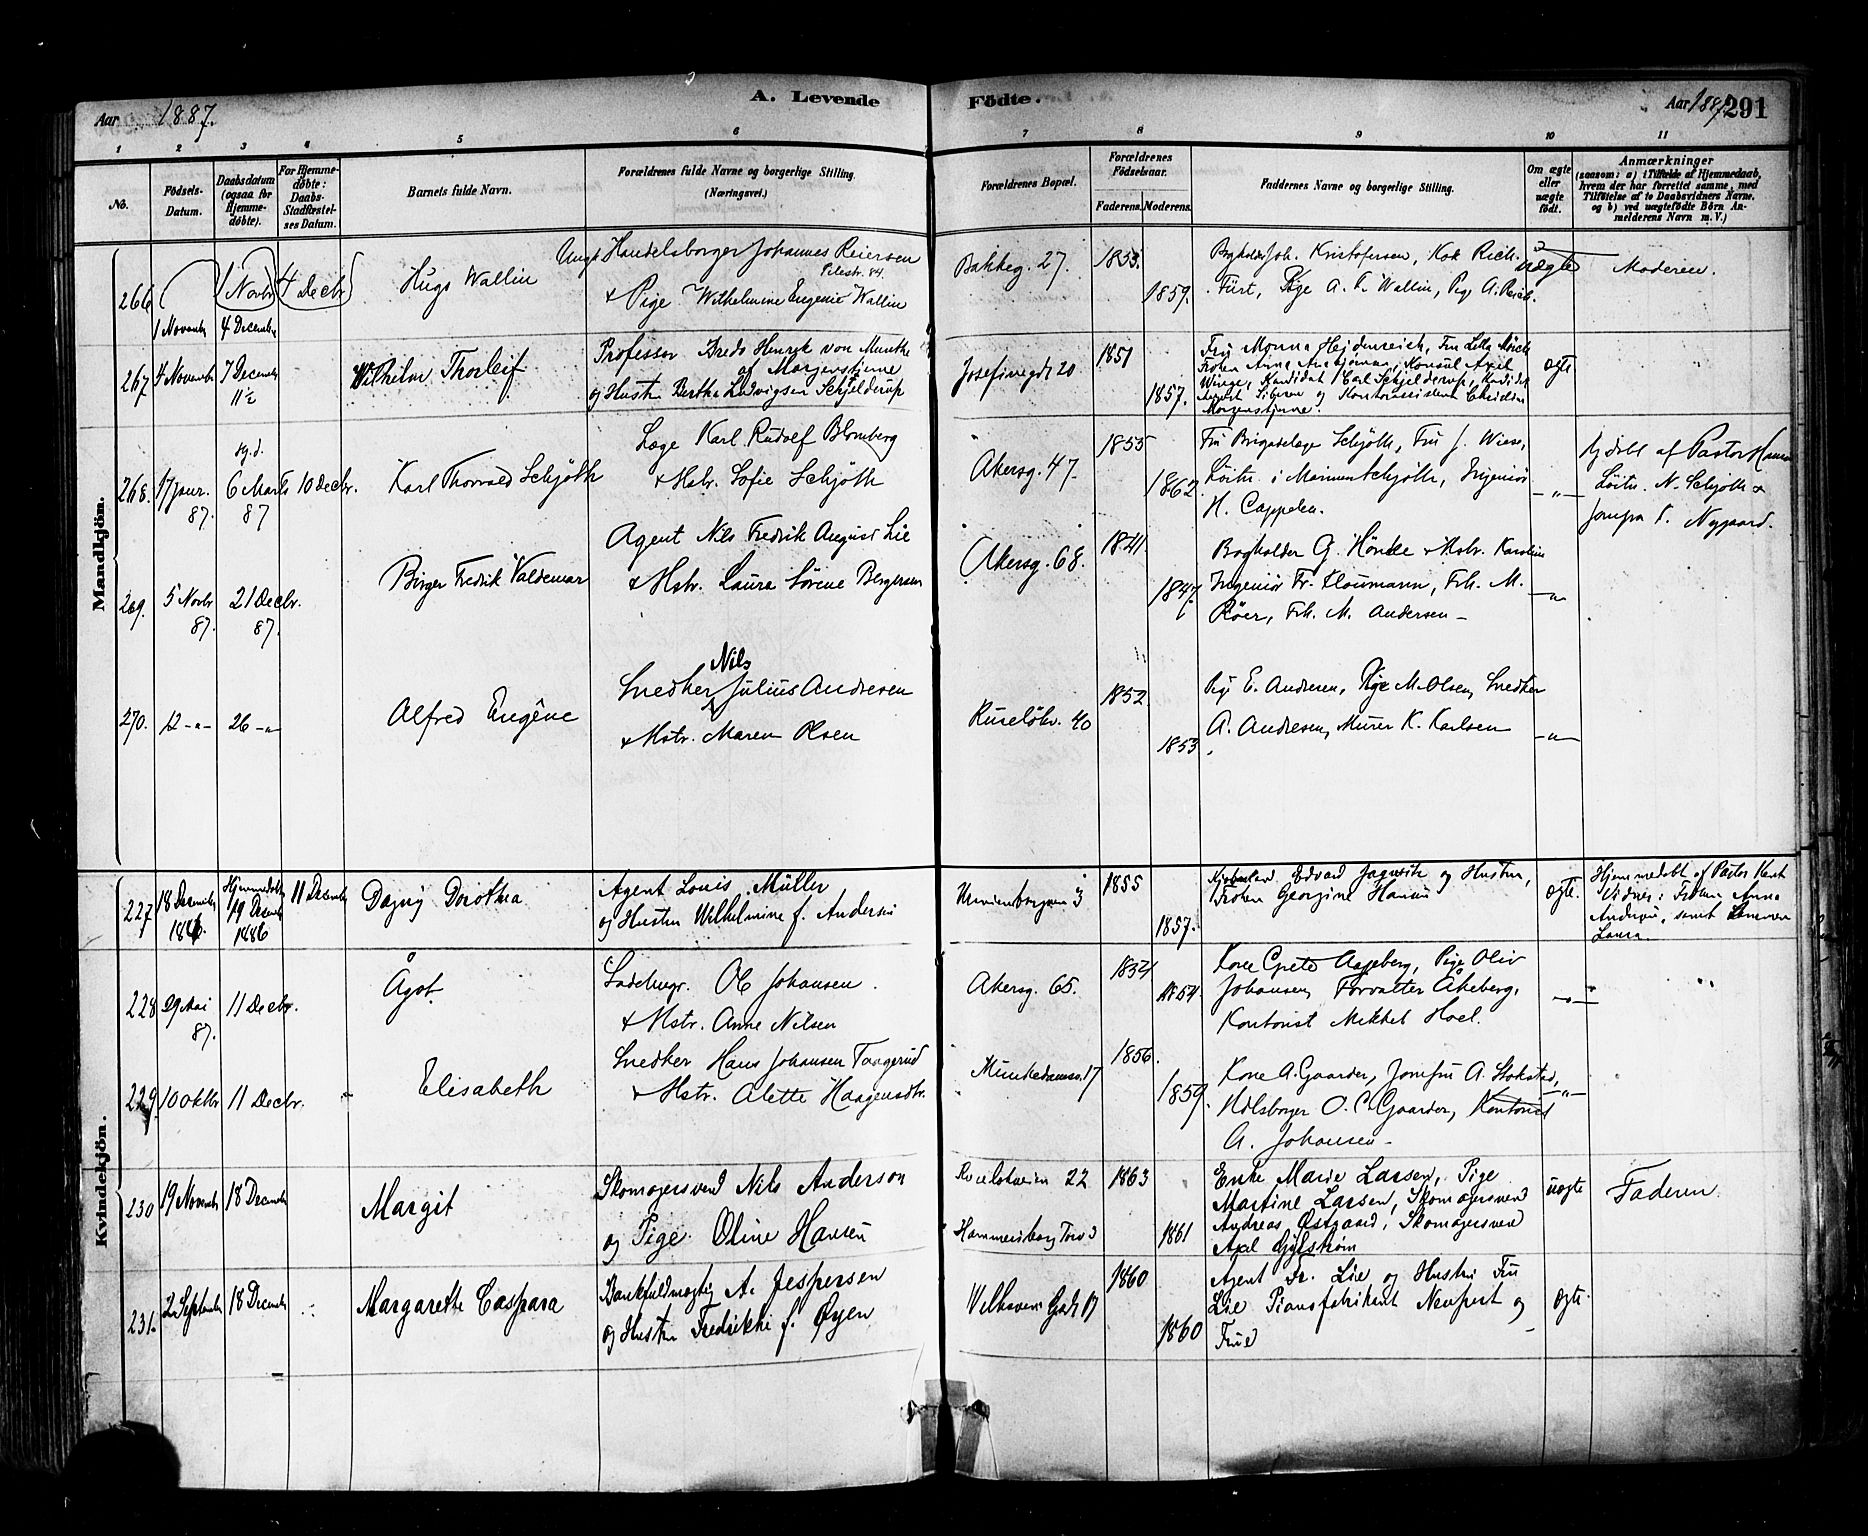 Aar 1887.
A. Levende
Födte.
Aar 1887 291
1 2 3 4 5 6 7 8 9 10 11
No.
Födsels-Datum.
Daabsdatum (ogsaa for Hjemme-döbte).
For Hjemme-döbte: Daabs-Stadfæstel-ses Datum.
Barnets fulde Navn.
Forældrenes fulde Navne og borgerlige Stilling. (Næringsvei.)
Forældrenes Bopæl.
Forældrenes Födselsaar.
Faderens. Moderens.
Faddernes Navne og borgerlige Stilling.
Om ægte eller uægte født.
Anmærkninger
(saasom: a) i Tilfælde af Hjemmedaab, hvem der har forrettet samme, med Tilföielse af to Daabsvidners Navne, og b) ved uægtefödte Börn An-melderens Navn m. V.)
Mandkjön.
266 1 Novembr
1 Novbr 4 Decembr
4 Decbr
Hugo Wallin
Ungk Handelsborger Johannes Reiersen
Pilestr. 84.
& Pige Wilhelmine Eugenie Wallin
Bakkeg. 27.
1853.
1859.
Bogholder Joh. Kristofersen, Kok Rich.
Fürst, Pige A. Wallin, Pige A. Reich.
uægte
Moderen.
267 4 Novembr 7 Decembr
11½
Wilhelm Thorleif
Professor Bredo Henrik von Munthe
af Morgenstierne
og Hustru Bertha Ludvigsen Schjelderup
Josefinegd 20
1851
1857.
Fru Monna Hejdenreich, Fru Letty
Frøken Anna Konsul Axel
Winge, Kandidat Carl Schjelderup, Kandidat
og Kontorassistent Christian
Morgenstjerne.
ægte
268. 17 Janr. 87.
Hj. d.
6 Marts 87
10 Decbr.
Karl Thorvald Schjöth
Læge Karl Rudolf Blomberg
& Hstr. Sofie Schjöth
Akersg. 47.
1855
1862
Fru Brigadelæge Schjöth, Fru J. Wiese,
Löitn. i Marinen Schjöth, Ingeniör
H. Cappelen.
— " —
hj. döbt af Pastor Hansen
Löitn. N. Schjöth &
Jomfru Nygaard.
269. 5 Novbr 87.
21 Decbr. 87.
Birger Fredrik Valdemar
Agent Nils Fredrik August Lie
& Hstr. Laura Sørine Bergersen
Akersg. 68.
1841.
1847.
Bogholder G. Höncke & Hstr. Karoline
Ingeniör Fr. Kloumann, Frk. M.
Röer, Frk. M. Andersen —
— "
270. 12 — " — 26 — "
Alfred Eugêne
Nils
Snedker Julius Andresen
& Hstr. Maren Olsen
Ruselökv. 40
1852.
1853
Pige E. Andresen, Pige M. Olsen, Snedker
A. Andresen, Murer K. Karlsen
— " —
Kvindekjön.
227 18 Decembr 1886.
Hjemmedöbt 19 Decembr 1886
11 Decembr
Dagny Dorothea
Agent Louis Müller
og Hustru Wilhelmine f. Andersen
3
1855
1857.
Edvard og Hustru,
Frøken Georgine Hansen
ægte.
Hjemmedøbt af Pastor
Vidner: Frøken Anna
Andersen, samt
Laura.
228 29 Mai 87.
11 Decbr.
Ågot
Sadelmgr. Ole Johansen
& Hstr. Anne Nilsen
Akersg. 65.
1854
1854.
Kone Grete Aageberg, Pige Oliv
Johansen, Forvalter Åkeberg,
Kontorist Mikkel Hoel.
— " —
229 10 Oktbr 11 Decbr.
Elisabeth
Snedker Hans Johansen Taagerud
& Hstr. Alette Haagensdtr.
Munkedamsv. 17
1856.
1859.
Kone A. Gaarder, Jomfru A. Stokstad,
Hdlsborger O. C. Gaarder, Kontorist
A. Johansen —
— " —
230 19 Novembr 18 Decembr
Margit
Skomagersvend Nils Anderson
og Pige Oline Hansen
Ruselökveien 22
Hammersborg Torv 3
1863
1861
Enke Marie Larsen, Pige
Martine Larsen, Skomagersvend
Andreas Østgaard, Skomagersvend
Axel Gylstrøm
uægte
Faderen.
231. 2 Septembr 18 Decembr
Margarethe Caspara
Bankfuldmægtig A. Jespersen
og Hustru Fredrikke f. Øyen
Welhavens Gade 17
1860
1860
Agent Fr. Lie og Hustru Fru
Lie Pianofabrikant Neupert og
Frue
ægte.